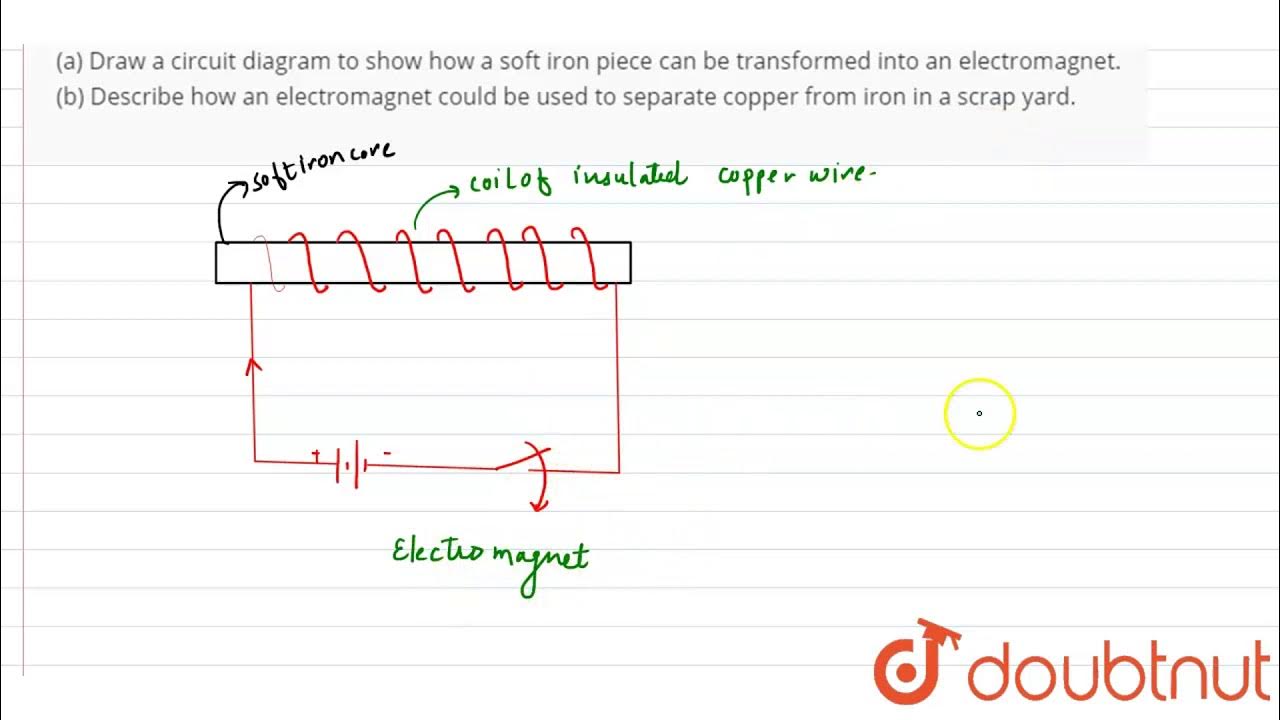 (a) Draw a circuit diagram to show how a soft iron piece can be transformed into an electromagnet.
(b) Describe how an electromagnet could be used to separate copper from iron in a scrap yard.
soft iron core
coil of insulated copper wire.
+ -
Electromagnet
doubtnut